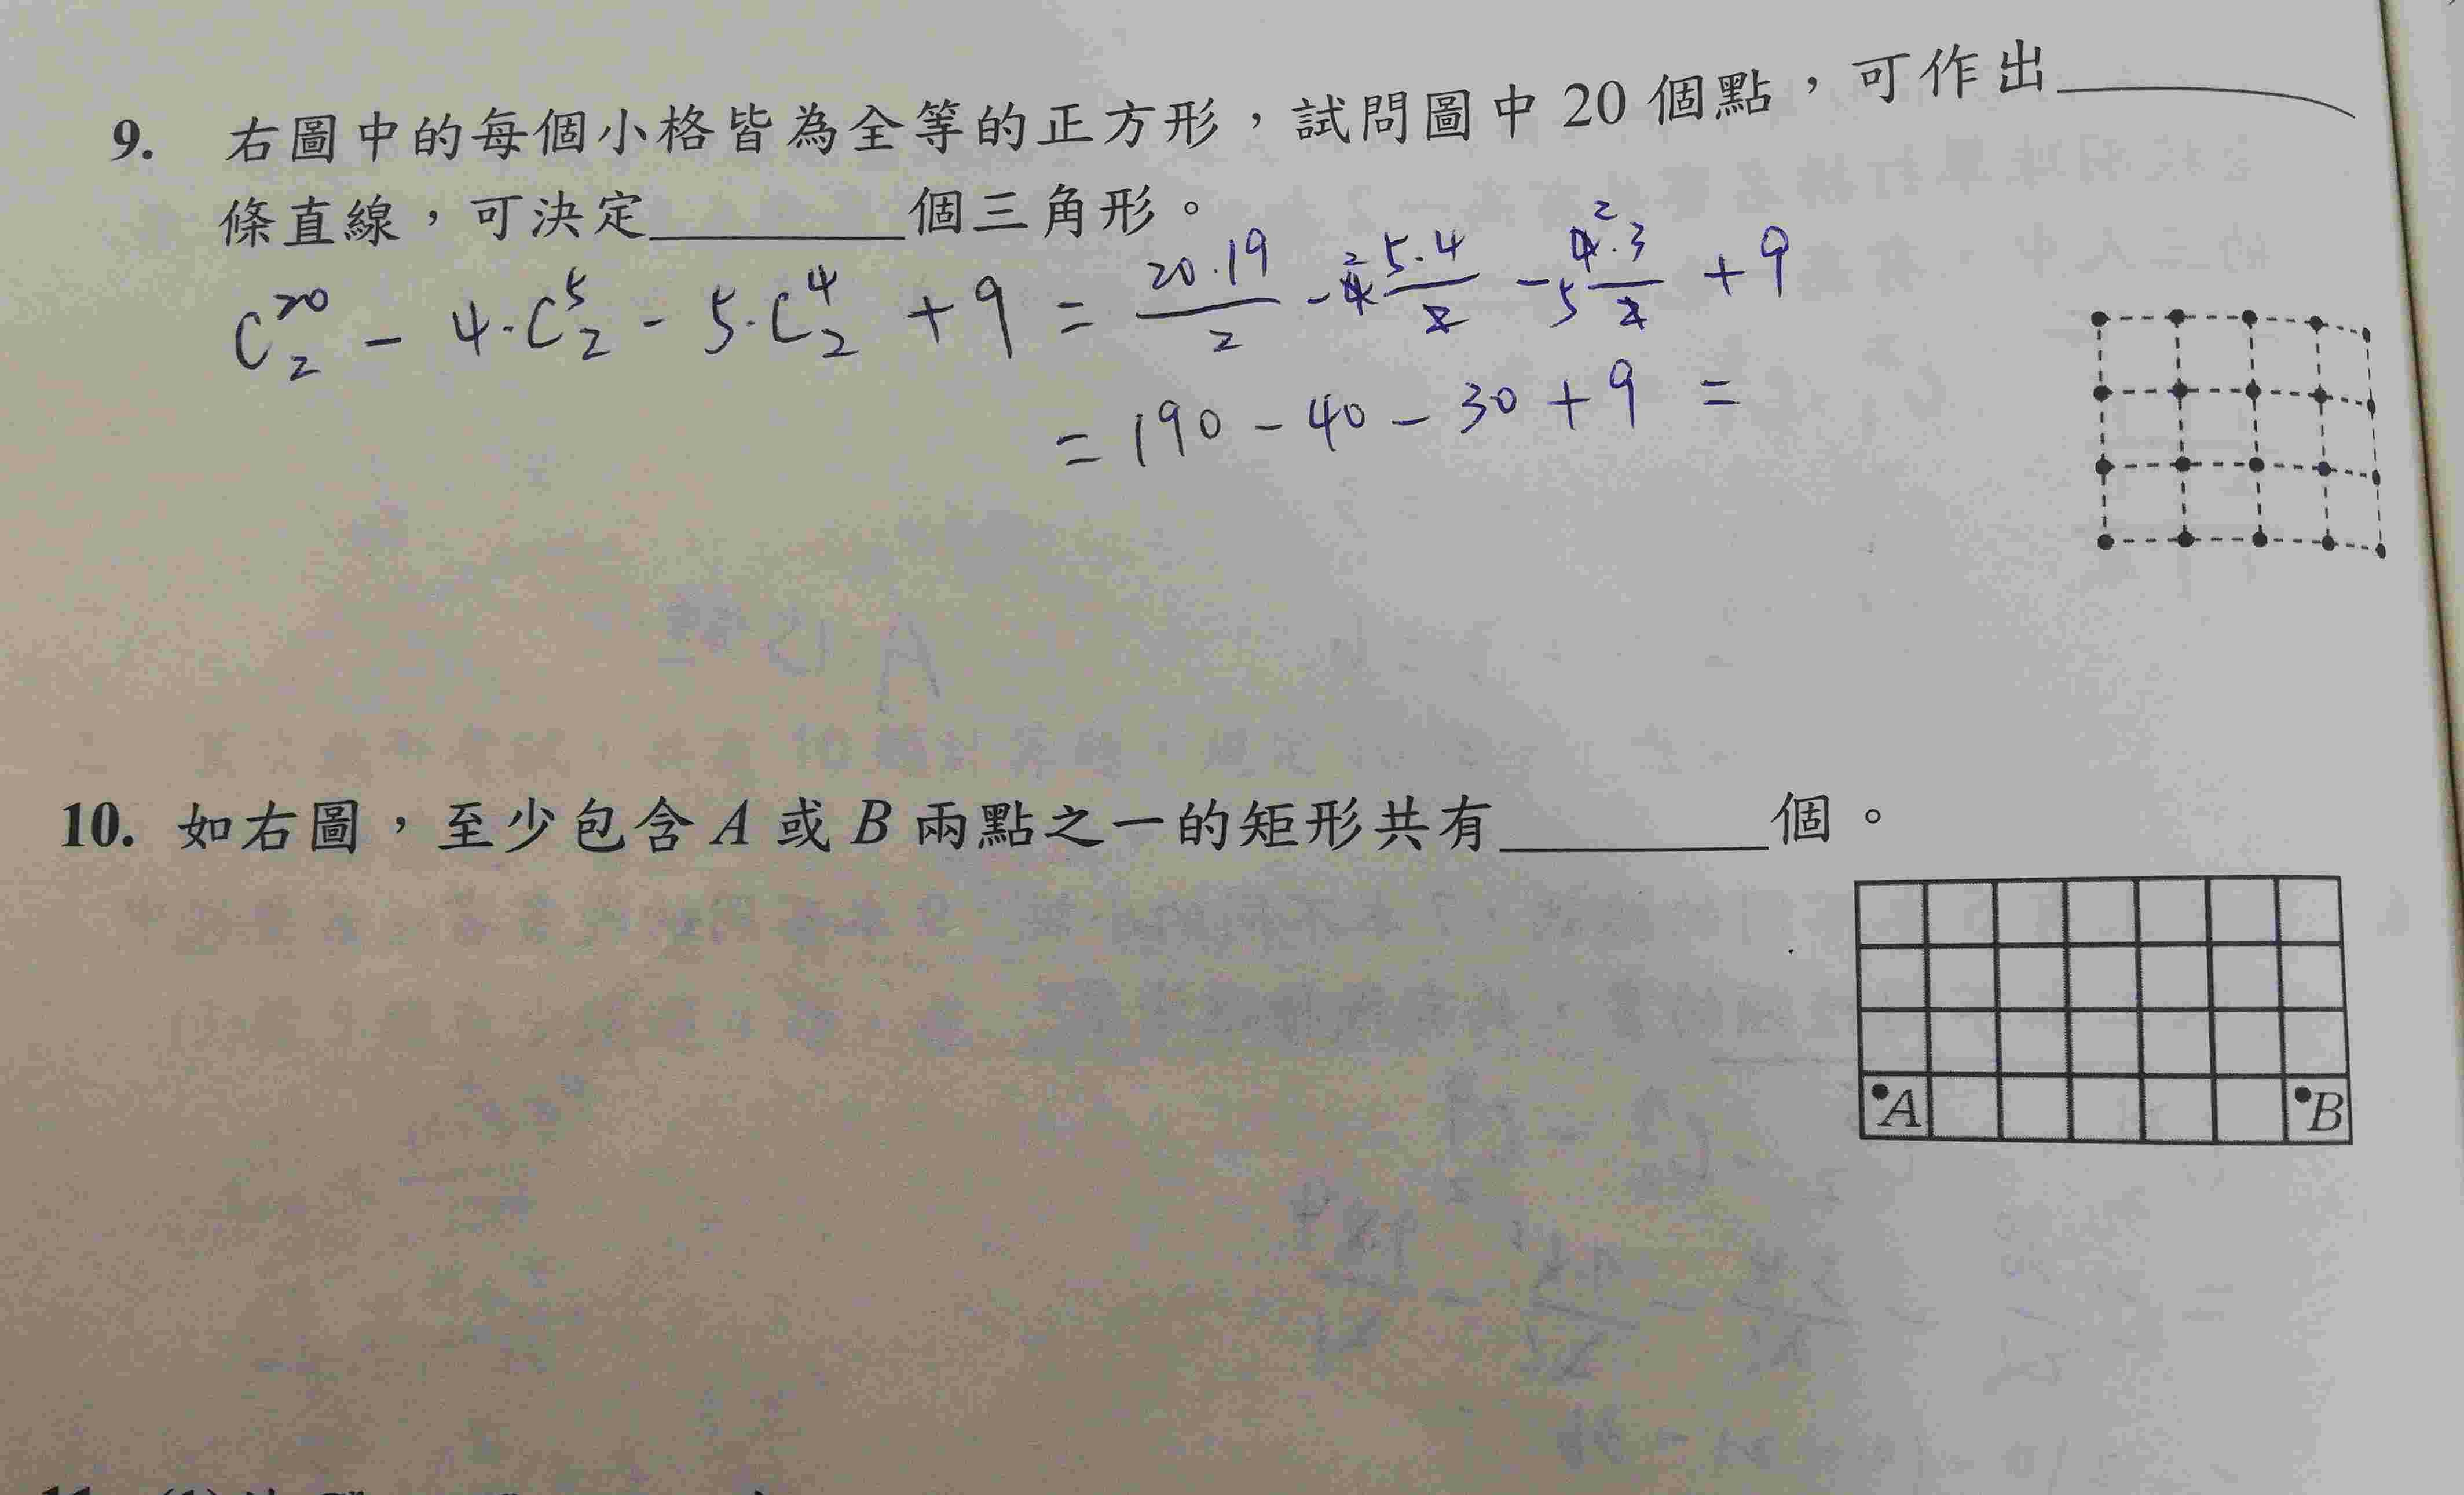 9. 右圖中的每個小格皆為全等的正方形，試問圖中 20 個點，可作出
條直線，可決定________個三角形。
C^20_2 - 4·C^5_2 - 5·C^4_2 + 9 = 20·19/2 - 4 5·4/2 - 5 4·3/2 + 9
= 190 - 40 - 30 + 9 =
10. 如右圖，至少包含 A 或 B 兩點之一的矩形共有________個。
A B